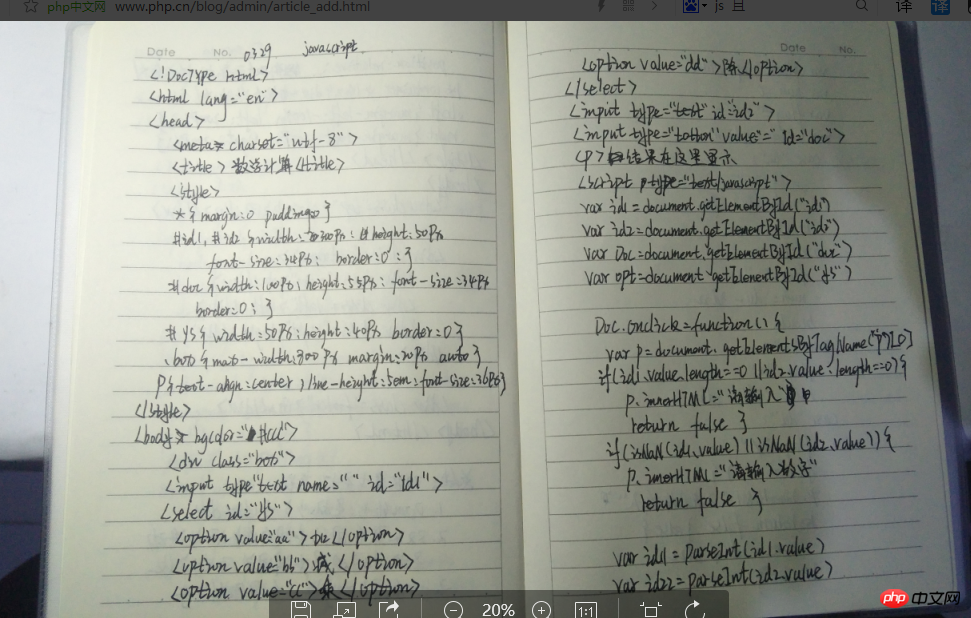 php中文网 www.php.cn/blog/admin/article_add.html
js 且
译 译
Date No. 0329 javascript
<!DocType html>
<html lang="en">
<head>
<meta charset="utf-8">
<title>数 计算<title>
<style>
*{margin:0 padding:0}
#id1,#id2{width:300Px: height:50Px
font-size:34Px: border:0:}
#doc{width:100Px:height:55Px: font-size:34Px
border:0:}
#ys{width:50Px:height:40Px border:0}
.box{max-width:300Px margin:20Px auto}
P{text-align:center;line-height:5em:font-size:36Px}
</style>
<body> bgcolor="#ccc">
<div class="box">
<input type"text name="" id="id1">
<select id="ys">
<option value="aa">加</option>
<option value="bb">减</option>
<option value="cc">乘</option>
Date No.
<option value="dd">除</option>
</select>
<input type="text" id="id2">
<input type="botton" value=" Id="doc">
<p>结果在这里显示
<script type="text/javascript">
var id1=document.getElementById("id1)
var id2=document.getElementById("id2")
var Doc=document.getElementById("doc")
var opt=document.getElementById("ys")
Doc.Onclick=function(){
var p=document.getElementsByTagName("P")[0]
if(id1.value.length==0||id2.value.length==0){
p.innerHTML="请输入
return false }
if(isNaN(id1.value)||isNaN(id2.value)){
p.innerHTML="请输入数字"
return false }
var id11=ParseInt(id1.value)
var id22=parseInt(id2.value)
20% 1:1
php 中文网